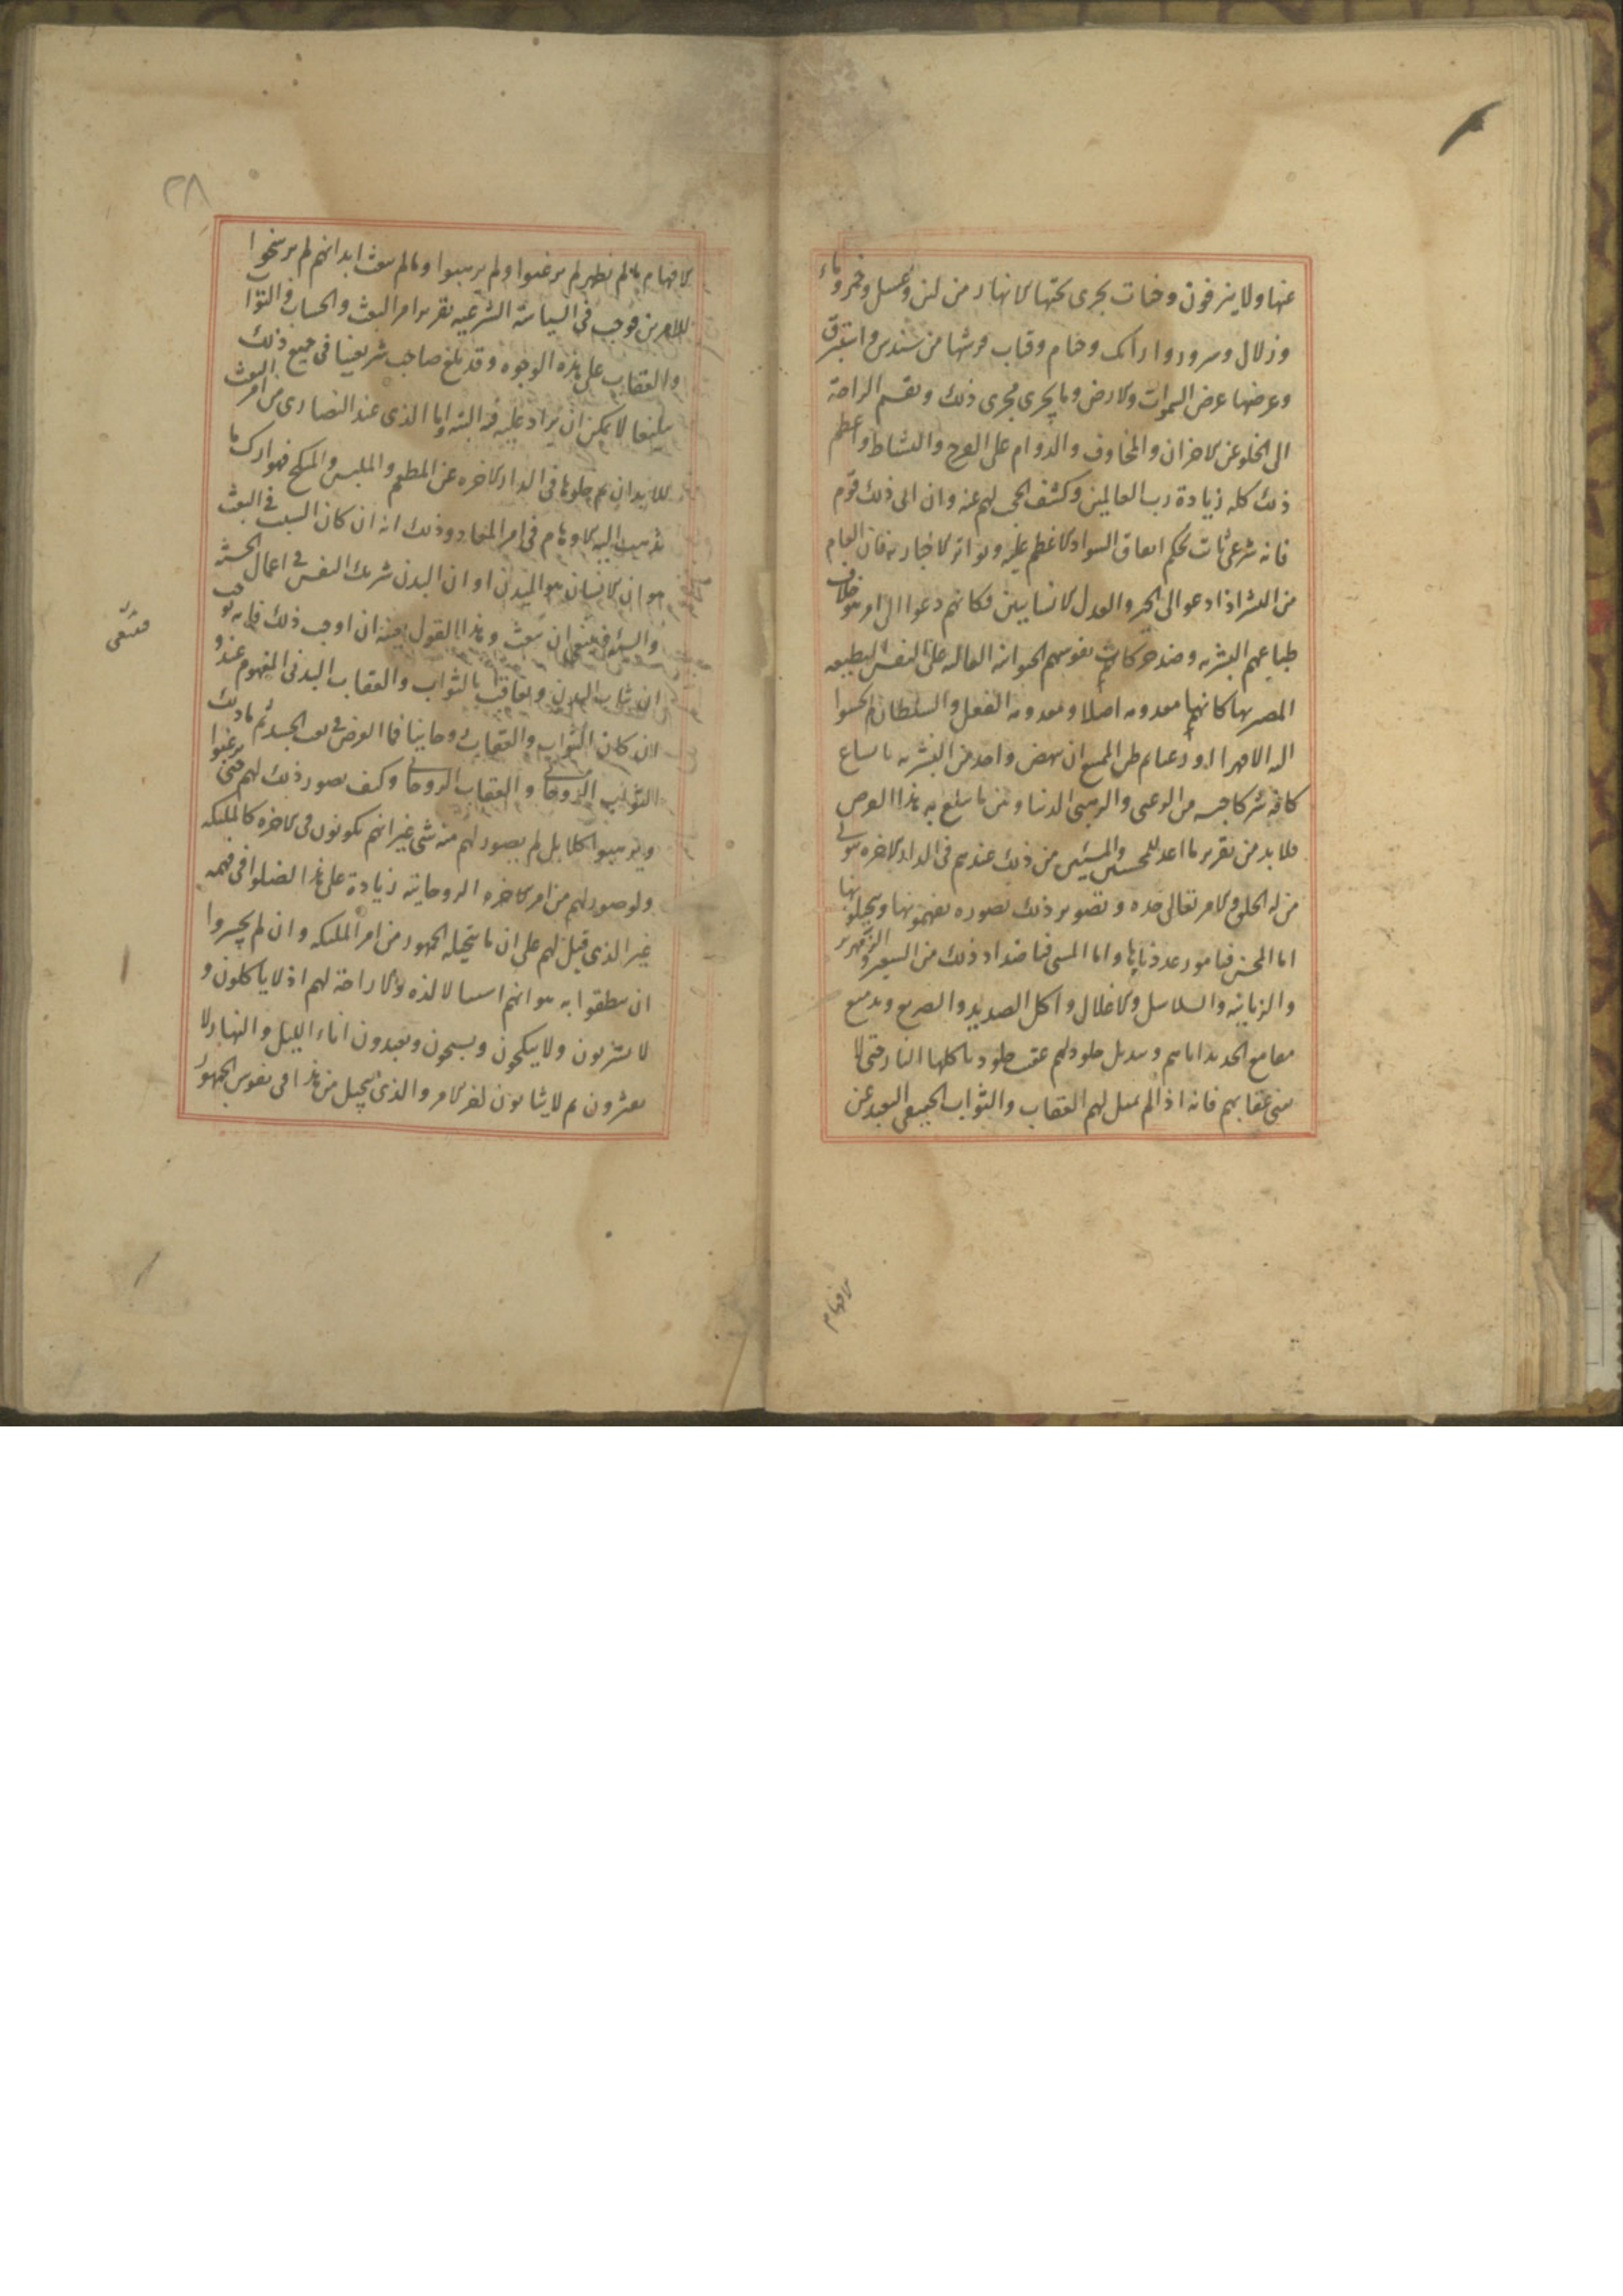 عنها ولا ينزفون وجنات تجرى تحتها الانهار من لبن وعسل وخمر وماء
وزلال وسرور وارائك وخيام وقباب فرشها من سندس واستبرق
وعرضها عرض السموات والارض وما يجرى مجرى ذلك ونقسم الراحة
الى الخلو عن الاحزان والمخاوف والدوام على الفرح والنشاط واعظم
ذلك كله زيادة رب العالمين وكشف الحجب لهم عنه وان الى ذلك قوم
فانه شرعى ثابت بحكم اتفاق السواد الاعظم عليه وتواتر الاخبار به فان العام
من البشر اذا دعوا الى الخير والعدل الانسانيين فكانهم دعوا الى امر هو خلاف
طباعهم البشرية وضد حركات نفوسهم الحيوانية الغالبة على النفس المطيعة
المصر بها كانها معدومة اصلا ومعدومة الفعل والسلطان
اليه الا قهرا او ان ينهض واحد من البشر
كافة شركا جنسه من الرعب والترهيب الدنياوين ما يبلغ به هذا الغرض
فلا بد من تقرير ما اعد للمحسنين والمسيئين من ذلك عندهم فى الدار الاخرة
من له الخلق والامر تعالى جده وتصوير ذلك بصورة يفهمونها ويتخيلونها
اما المحسن فبامور عددناها واما المسئ فباضداد ذلك من السعير والزمهرير
والزبانية والسلاسل والاغلال واكل الصديد والضريع
مقامع الحديد اياهم وتبديل جلودهم عقيب جلود تاكلها النار حتى لا
عقابهم فانه اذا لم يمثل لهم العقاب والثواب الحقيقى البعيد عن
الافهام
٢٨
الافهام بما لم يظهر لم يرغبوا ولم يرهبوا وما لم تبعث ابدانهم لم يرسخوا
للامرين فوجب فى السياسة الشرعية تقرير امر البعث والحساب والثواب
والعقاب على هذه الوجوه وقد بلغ صاحب شريعتنا فى جميع ذلك
مبلغا لا يمكن ان يزاد عليه فيه البتة واما الذى عند النصارى من امر البعث
للابدان ثم خلوها فى الدار الاخرة عن المطعم والملبس والمنكح فهو ارك ما
تذهب اليه الاوهام فى امر المعاد وذلك انه ان كان السبب فى البعث
هو ان الانسان هو البدن او ان البدن شريك النفس فى اعمال الحسنة
والسيئة فينبغى ان يبعث وهذا القول بعينه ان اوجب ذلك فانه يوجب
ان يثاب البدن ويعاقب بالثواب والعقاب البدنى المفهوم عند
ان كان الثواب والعقاب روحانيا فما الغرض فى بعث الجسد ثم ما ذلك
الثواب الروحانى والعقاب الروحانى وكيف يصور ذلك لهم حتى يرغبوا
ويرهبوا كلا بل لم يصور لهم منه شئ غير انهم يكونون فى الاخرة كالملئكة
ولو صور لهم من امر الاخرة الروحانية زيادة على هذا لضلوا فى فهمه
غير الذى قيل لهم على ان ما يتخيله الجمهور من امر الملئكة وان لم يجسروا
ان ينطقوا به هو انهم لا لذة ولا راحة لهم اذ لا ياكلون و
لا يشربون ولا ينكحون ويسبحون ويعبدون اناء الليل والنهار لا
يفترون ثم لا يثابون اخر الامر والذى يتخيل من هذا فى نفوس الجمهور